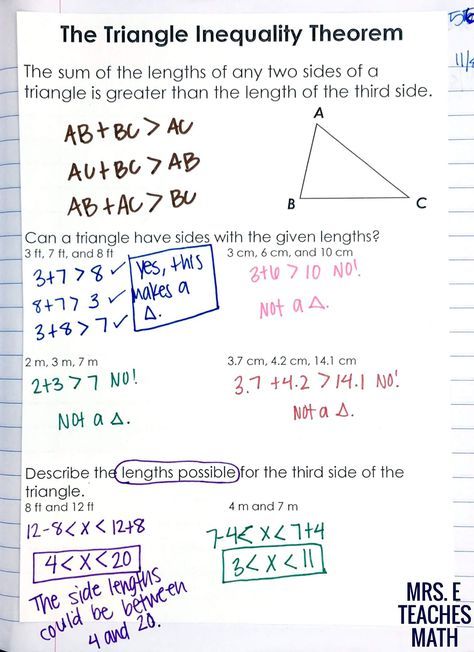 The Triangle Inequality Theorem
The sum of the lengths of any two sides of a
triangle is greater than the length of the third side.
AB + BC > AC
AC + BC > AB
AB + AC > BC
A
B
C
Can a triangle have sides with the given lengths?
3 ft, 7 ft, and 8 ft
3+7 > 8 ✓
8+7 > 3 ✓
3+8 > 7 ✓
yes, this
makes a
Δ.
3 cm, 6 cm, and 10 cm
3+6 > 10 NO!
Not a Δ.
2 m, 3 m, 7 m
2+3 > 7 NO!
Not a Δ.
3.7 cm, 4.2 cm, 14.1 cm
3.7 + 4.2 > 14.1 NO!
Not a Δ.
Describe the lengths possible for the third side of the
triangle.
8 ft and 12 ft
12-8 < x < 12+8
4 < x < 20
The side lengths
could be between
4 and 20.
4 m and 7 m
7-4 < x < 7+4
3 < x < 11
MRS. E
TEACHES
MATH